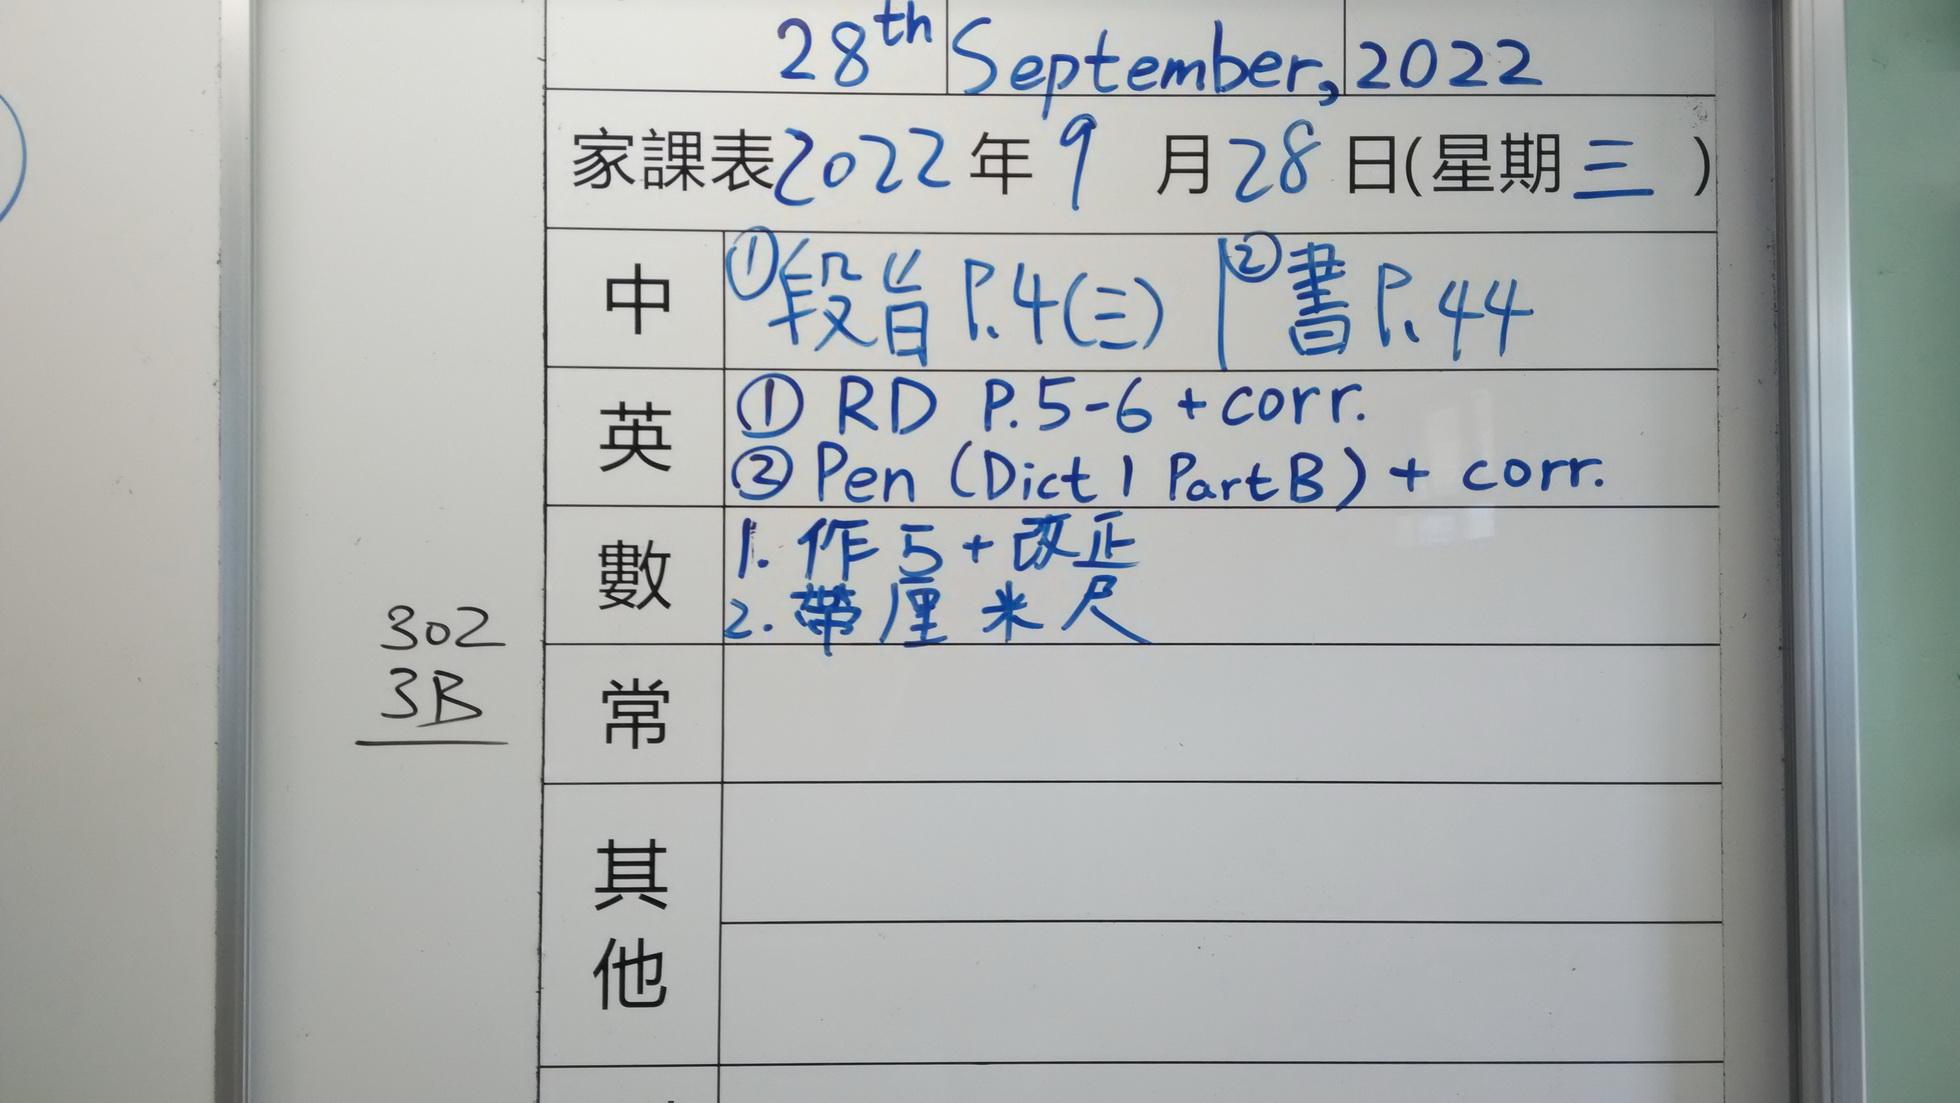 28th September, 2022
家課表2022年9月28日(星期三)
中 ①段旨 P.4(三) ②書 P.44
英 ① RD P.5-6 + corr.
② Pen (Dict 1 Part B) + corr.
數 1. 作5 + 改正
2. 帶厘米尺
302
3B
常
其他